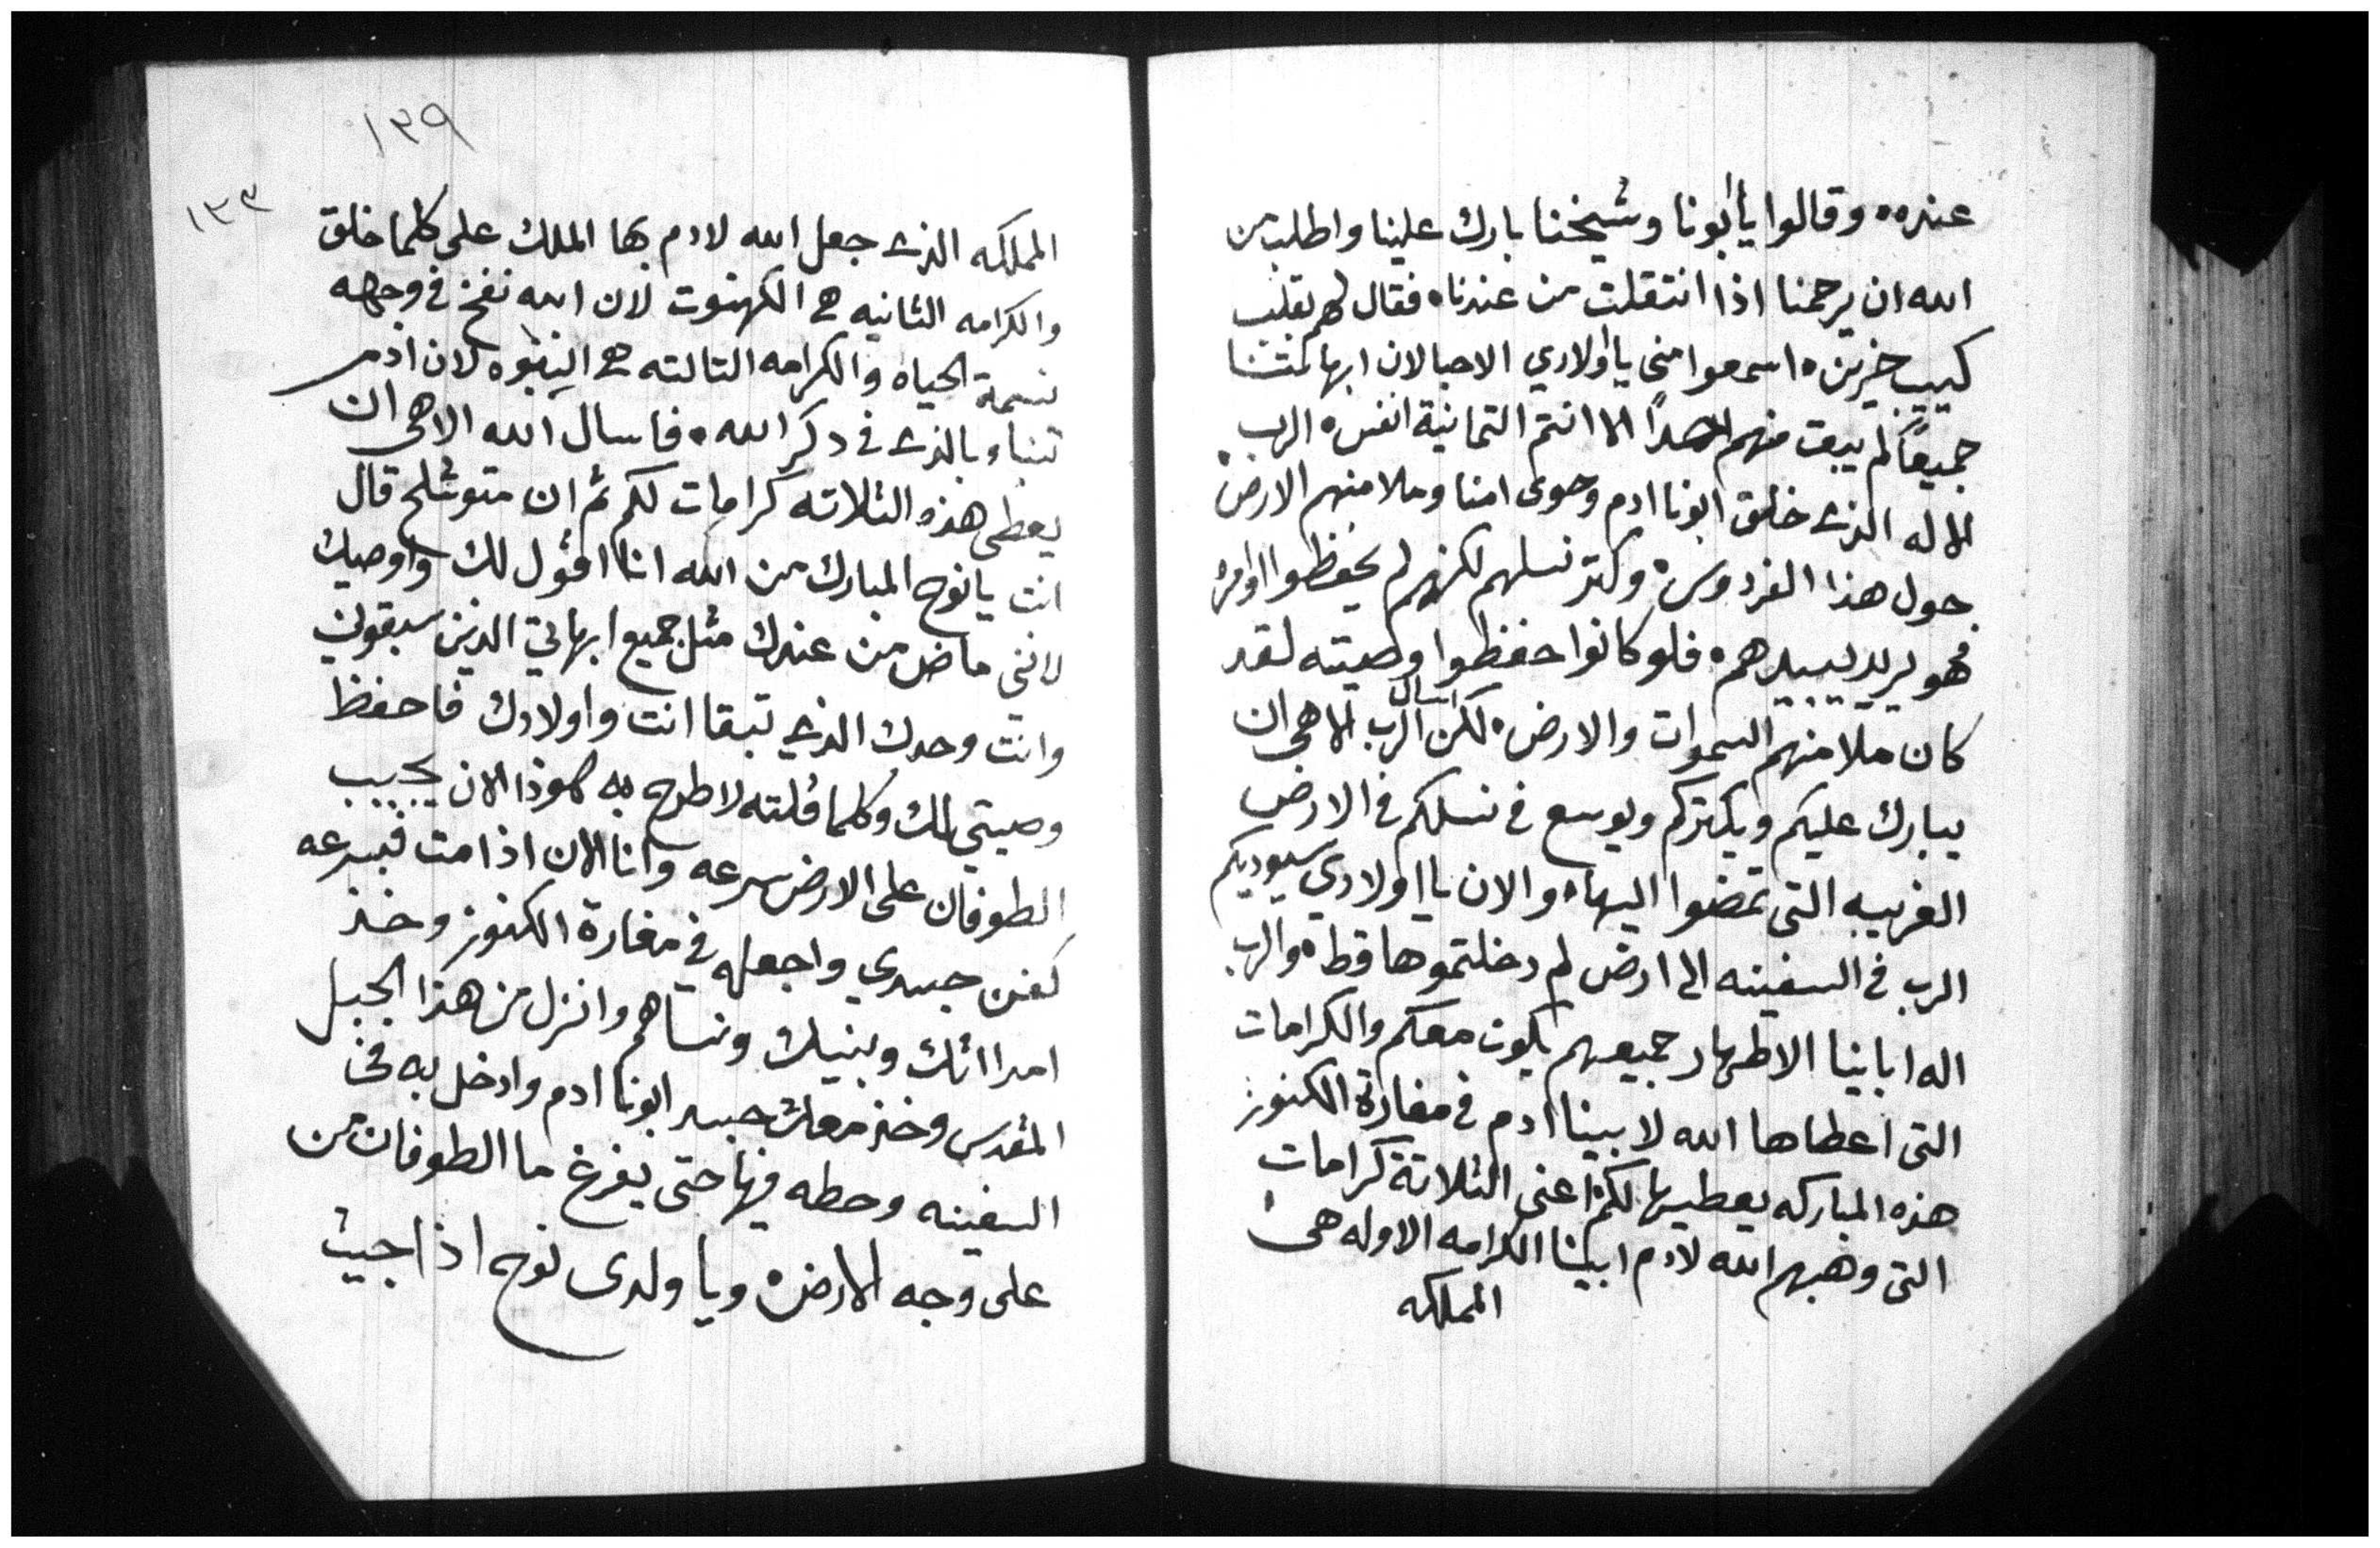 عنده٠ وقالوا يا ابونا وشيخنا بارك علينا واطلب من
الله ان يرحمنا اذا انتقلت من عندنا٠ فقال لهم بقلب
كييب حزين٠ اسمعوا مني يا اولادي الاحبا لان ابهاتنا
جميعًا لم يبقت منهم احدًا الا انتم التمانية انفس٠ الرب
الاله الذي خلق ابونا ادم وحوى امنا وملا منهم الارض
حول هذا الفردوس٠ وكتر نسلهم لكنهم لم يحفظوا اوامره
فهو يريد يبيدهم٠ فلو كانوا حفظوا وصيته لقد
كان ملا منهم السموات والارض٠ لكن اسال الرب الاهي ان
يبارك عليكم ويكتركم ويوسع في نسلكم في الارض
الغريبه التي تمضوا اليها٠ والان يا اولادي سيوديكم
الرب في السفينه الى ارض لم دخلتموها قط٠ والرب
اله اباينا الاطهار جميعهم يكون معكم والكرامات
التي اعطاها الله لابينا ادم في مغارة الكنوز
هذه المباركه يعطيها لكم اعنى الثلاتة كرامات
التي وهبهم الله لادم ابينا الكرامه الاوله هي
المملكه
١٣٩
١٣٣
المملكه الذي جعل الله لادم بها الملك على كلما خلق
والكرامه الثانيه هي الكهنوت لان الله نفخ في وجهه
نسمة الحياه والكرامه التالته هي النبوه لان ادم
تنبا وبالذي في دكر الله٠ فاسال الله الاهي ان
يعطي هذه الثلاته كرامات لكم ثم ان متوشلح قال
انت يا نوح المبارك من الله انا اقول لك واوصيك
لانني ماض من عندك مثل جميع ابهاتي الدين سبقوني
وانت وحدك الذي تبقا انت واولادك فاحفظ
وصيتي لك وكلما قلته لا طرح به هوذا الان يجيب
الطوفان على الارض سرعه وانا الان اذا مت فبسرعه
كفن جسدي واجعله في مغارة الكنوز وخذ
امراتك وبنيك ونساهم وانزل من هذا الجبل
المقدس وخذ معك جسد ابونا ادم وادخل به في
السفينه وحطه فيها حتى يفرغ ما الطوفان من
على وجه الارض٠ ويا ولدى نوح اذا جيت